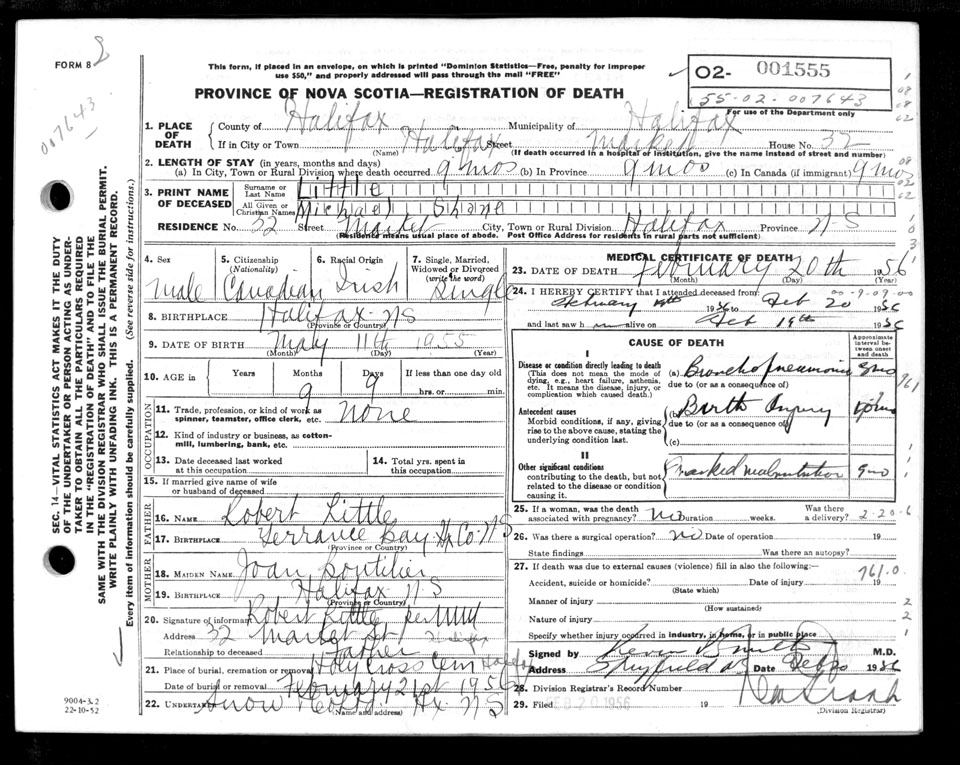 FORM 8
007643
This form, if placed in an envelope, on which is printed "Dominion Statistics—Free, penalty for improper
use $50," and properly addressed will pass through the mail "FREE"
PROVINCE OF NOVA SCOTIA—REGISTRATION OF DEATH
02- 001555
55-02-007643
For use of the Department only
1. PLACE OF DEATH
County of Halifax Municipality of Halifax
If in City or Town Halifax Street Market House No. 32
(Name) (If death occurred in a hospital or institution, give the name instead of street and number)
2. LENGTH OF STAY (in years, months and days)
(a) In City, Town or Rural Division where death occurred 9 mos (b) In Province 9 mos (c) In Canada (if immigrant) 9 mos
3. PRINT NAME OF DECEASED
Surname or Last Name Little
All Given or Christian Names Michael Shane
RESIDENCE No. 32 Street Market City, Town or Rural Division Halifax Province N S
(Residence means usual place of abode. Post Office Address for residents in rural parts not sufficient)
4. Sex Male
5. Citizenship (Nationality) Canadian
6. Racial Origin Irish
7. Single, Married, Widowed or Divorced (write the word) Single
8. BIRTHPLACE Halifax NS
(Province or Country)
9. DATE OF BIRTH May 11th 1955
(Month) (Day) (Year)
10. AGE in Years Months 9 Days 9 If less than one day old hrs. or min.
OCCUPATION
11. Trade, profession, or kind of work as spinner, teamster, office clerk, etc. none
12. Kind of industry or business, as cotton-mill, lumbering, bank, etc.
13. Date deceased last worked at this occupation
14. Total yrs. spent in this occupation
15. If married give name of wife or husband of deceased
FATHER
16. NAME Robert Little
17. BIRTHPLACE Terrance Bay Hx Co. NS
(Province or Country)
MOTHER
18. MAIDEN NAME Joan
19. BIRTHPLACE Halifax N S
(Province or Country)
20. Signature of informant Robert Little per
Address 32 Market St Halifax
Relationship to deceased Father
21. Place of burial, cremation or removal Holy Cross Cem Halifax
Date of burial or removal February 21st 1956
22. UNDERTAKER Snow Hx NS
(Name and address)
MEDICAL CERTIFICATE OF DEATH
23. DATE OF DEATH February 20th 1956
(Month) (Day)
24. I HEREBY CERTIFY that I attended deceased from
February 1956 to Feb 20 1956
and last saw h m alive on Feb 19th 1956
CAUSE OF DEATH
Approximate interval between onset and death
I
Disease or condition directly leading to death
(This does not mean the mode of dying, e.g., heart failure, asthenia, etc. It means the disease, injury, or complication which caused death.)
(a) Bronchopneumonia
due to (or as a consequence of)
Antecedent causes
Morbid conditions, if any, giving rise to the above cause, stating the underlying condition last.
(b) Birth Injury
due to (or as a consequence of)
(c)
II
Other significant conditions
contributing to the death, but not related to the disease or condition causing it.
marked malnutrition 9 mo
25. If a woman, was the death associated with pregnancy? no Duration weeks. Was there a delivery? 2-20-6
26. Was there a surgical operation? no Date of operation 19
State findings Was there an autopsy?
27. If death was due to external causes (violence) fill in also the following:—
761.0
Accident, suicide or homicide? Date of injury 19
(State which)
Manner of injury
(How sustained)
Nature of injury
Specify whether injury occurred in industry, in home, or in public place
Signed by Kevin B Smith M.D.
Address Spryfield NS Date Feb 20 1956
28. Division Registrar's Record Number
29. Filed FEB 20 1956 19
(Division Registrar)
SEC. 14—VITAL STATISTICS ACT MAKES IT THE DUTY
OF THE UNDERTAKER OR PERSON ACTING AS UNDER-
TAKER TO OBTAIN ALL THE PARTICULARS REQUIRED
IN THE "REGISTRATION OF DEATH" AND TO FILE THE
SAME WITH THE DIVISION REGISTRAR WHO SHALL ISSUE THE BURIAL PERMIT.
WRITE PLAINLY WITH UNFADING INK. THIS IS A PERMANENT RECORD.
Every item of information should be carefully supplied. (See reverse side for instructions.)
9004-3.2
22-10-52